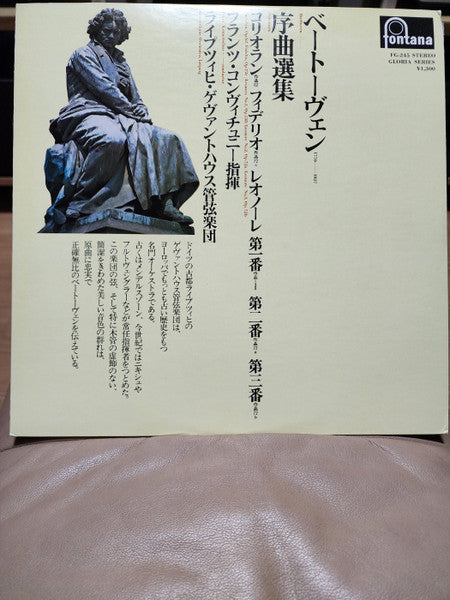 fontana
FG-245 STEREO
GLORIA SERIES
¥1,300
ベートーヴェン
序曲選集
コリオラン 作品62 フィデリオ 作品72 レオノーレ 第一番 第二番 第三番
フランツ・コンヴィチュニー指揮
ライプツィヒ・ゲヴァントハウス管弦楽団
ドイツの古都ライプツィヒの
ゲヴァントハウス管弦楽団は、
ヨーロッパでもっとも古い歴史をもつ
名門オーケストラである。
古くはメンデルスゾーン、今世紀ではニキシュや
フルトヴェングラーなどが常任指揮者をつとめた。
この楽団の弦、そして特に木管の虚飾のない、
簡潔をきわめた美しい音色の群れは、
原曲に忠実で
正確無比のベートーヴェンを伝えている。